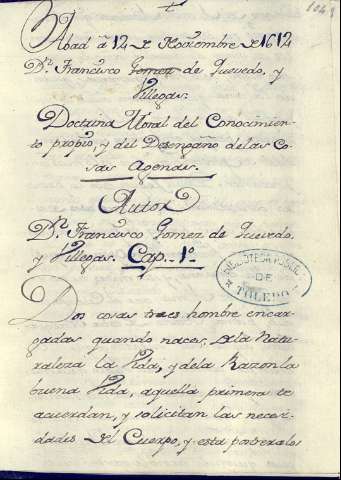 1049
Abad à 12 de Noviembre de 1612
Dⁿ. Francisco Gomez de Quevedo, y
Villegas.
Doctrina Moral del Conocimien-
to propio, y del Desengaño de las Co-
sas Agenas.
Autor
Dⁿ. Francisco Gomez de Quevedo
y Villegas. Cap. 1º.
BIBLIOTECA PUBLICA
DE
TOLEDO
Dos cosas traes hombre encar-
gadas quando naces, de la Natu-
raleza la Vida, y de la Razon la
buena Vida, aquella primera te
acuerdan, y solicitan las necesi-
dades del Cuerpo, y esta postrera los